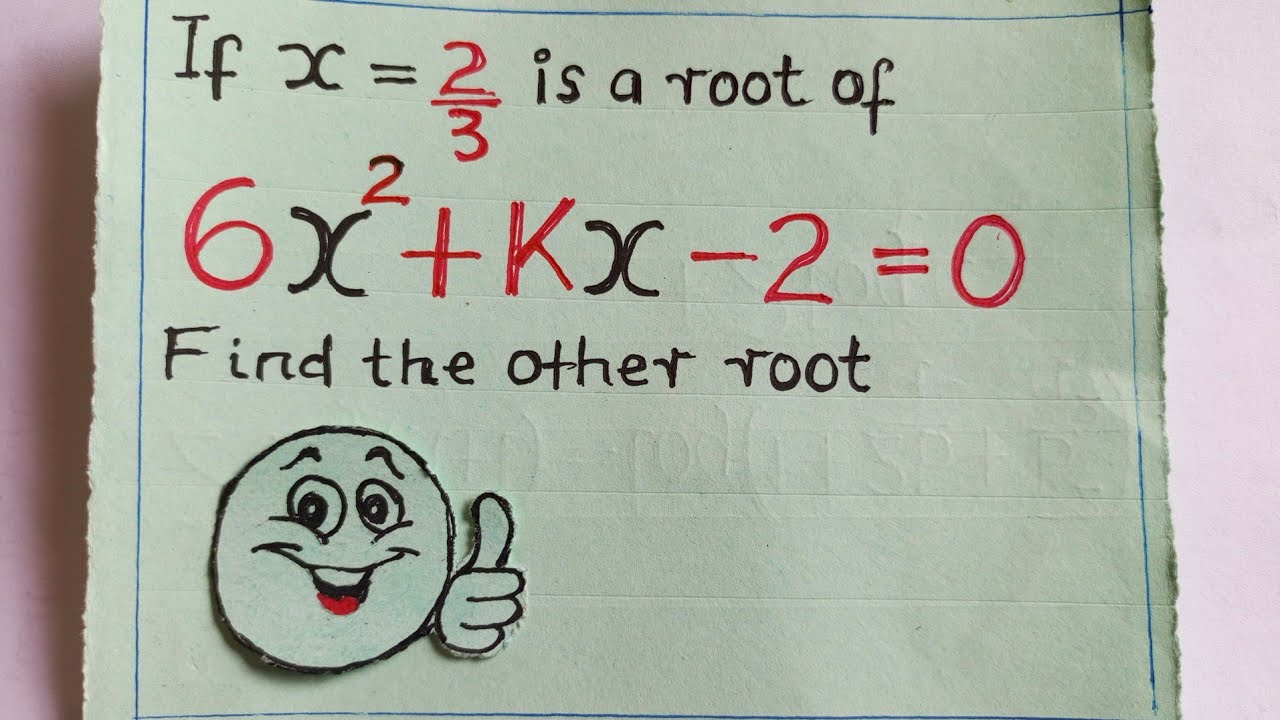 If x = 2/3 is a root of
6x² + Kx - 2 = 0
Find the other root